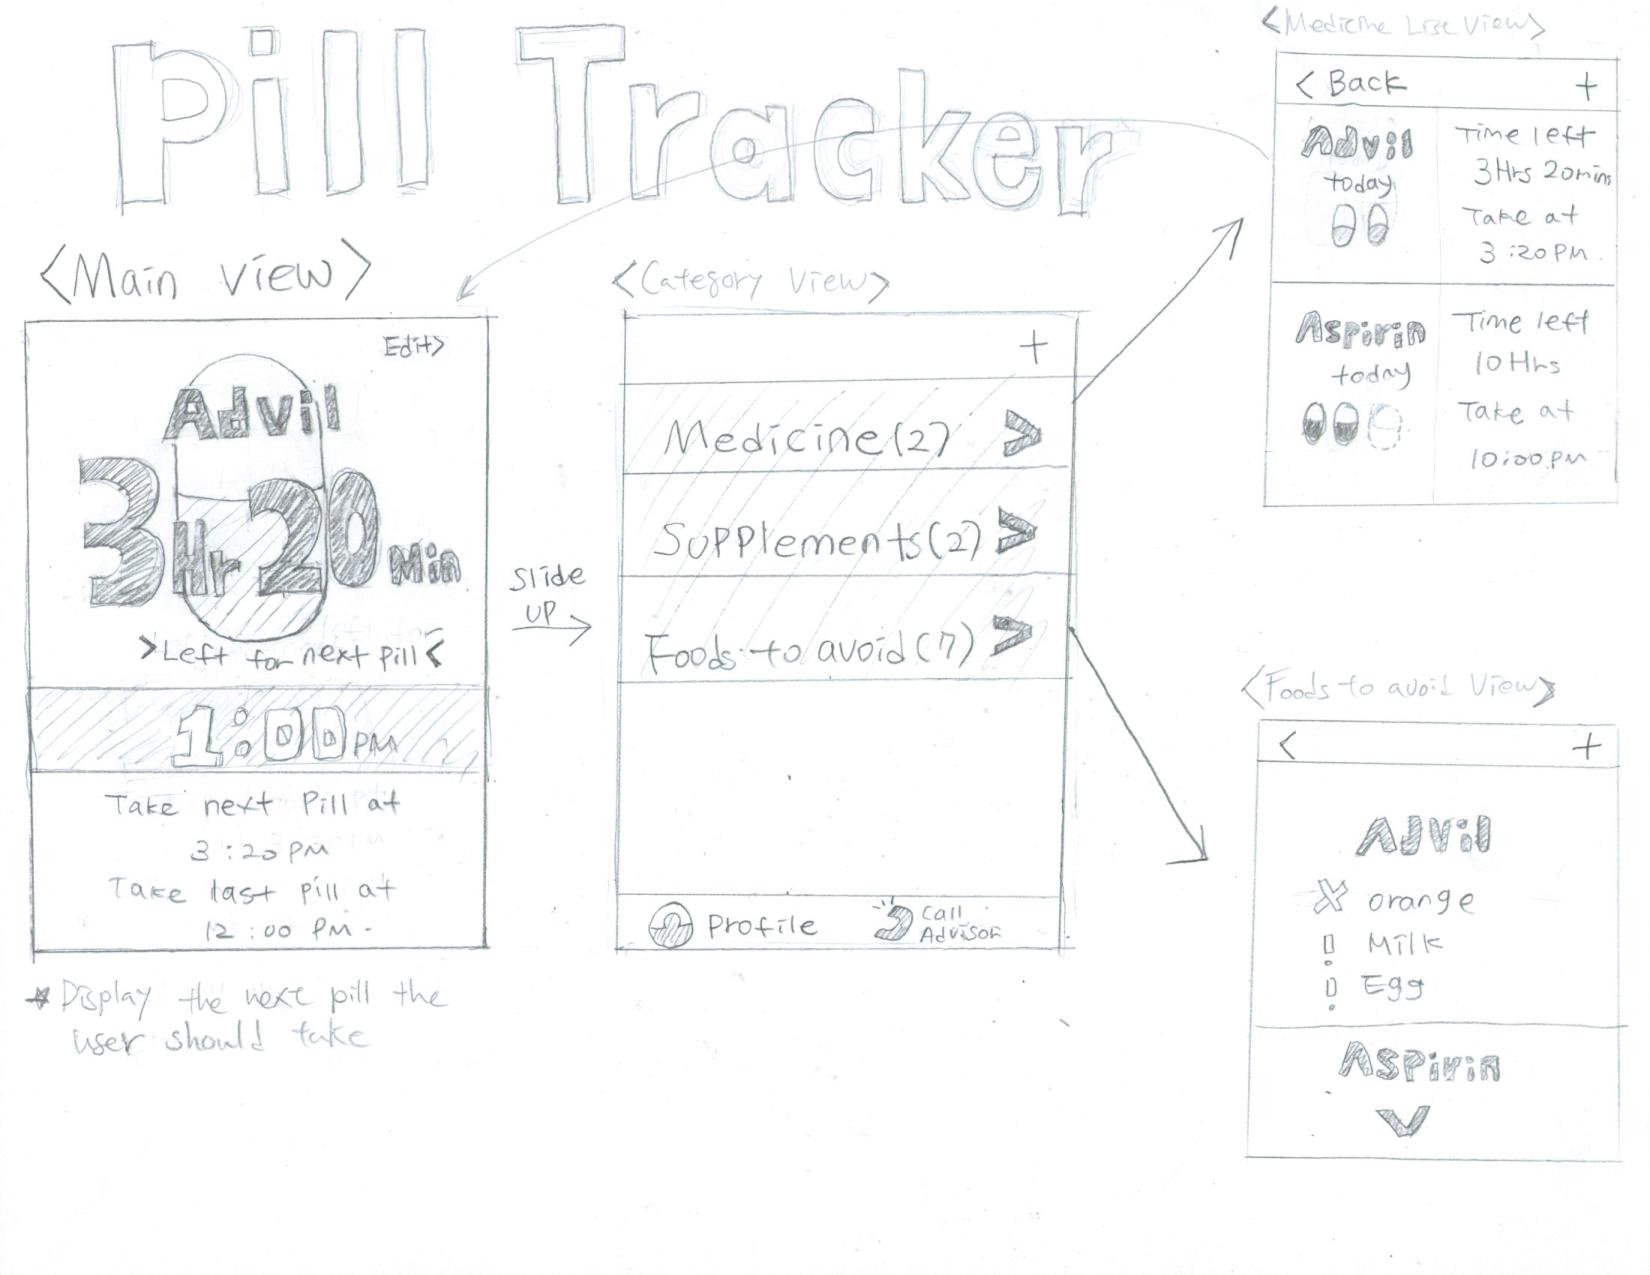 Pill Tracker
<Main View>
Edit>
Advil
3 Hr 20 Min
>Left for next pill<
1:00 PM
Take next Pill at
3:20 PM
Take last pill at
12:00 PM.
* Display the next pill the
user should take
Slide
UP
<Category View>
+
Medicine(2) >
Supplements(2) >
Foods to avoid(7) >
Profile
Call
Advisor
<Medicine List View>
< Back +
Advil
today
Time left
3Hrs 20mins
Take at
3:20PM.
Aspirin
today
Time left
10Hrs
Take at
10:00PM
<Foods to avoid View>
< +
Advil
X orange
! Milk
! Egg
Aspirin